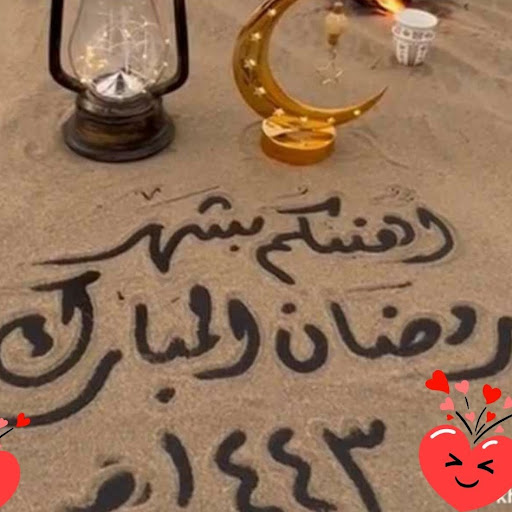 اهنئكم بشهر
رمضان المبارك
١٤٤٣هـ